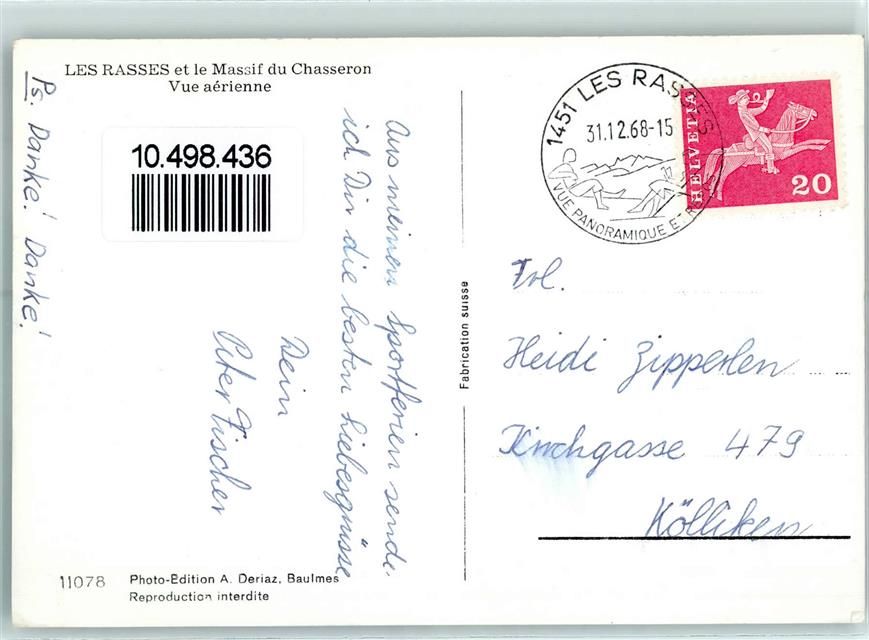 LES RASSES et le Massif du Chasseron
Vue aérienne
10.498.436
Ps. Danke! Danke!
Aus meinen Sportferien sende
ich Dir die besten Liebesgrüsse
Dein
Peter Fischer
11078
Photo-Edition A. Deriaz, Baulmes
Reproduction interdite
Fabrication suisse
1451 LES RASSES
31.12.68-15
VUE PANORAMIQUE ET
HELVETIA
20
Frl.
Heidi Zipperlen
Kirchgasse 479
Kölliken